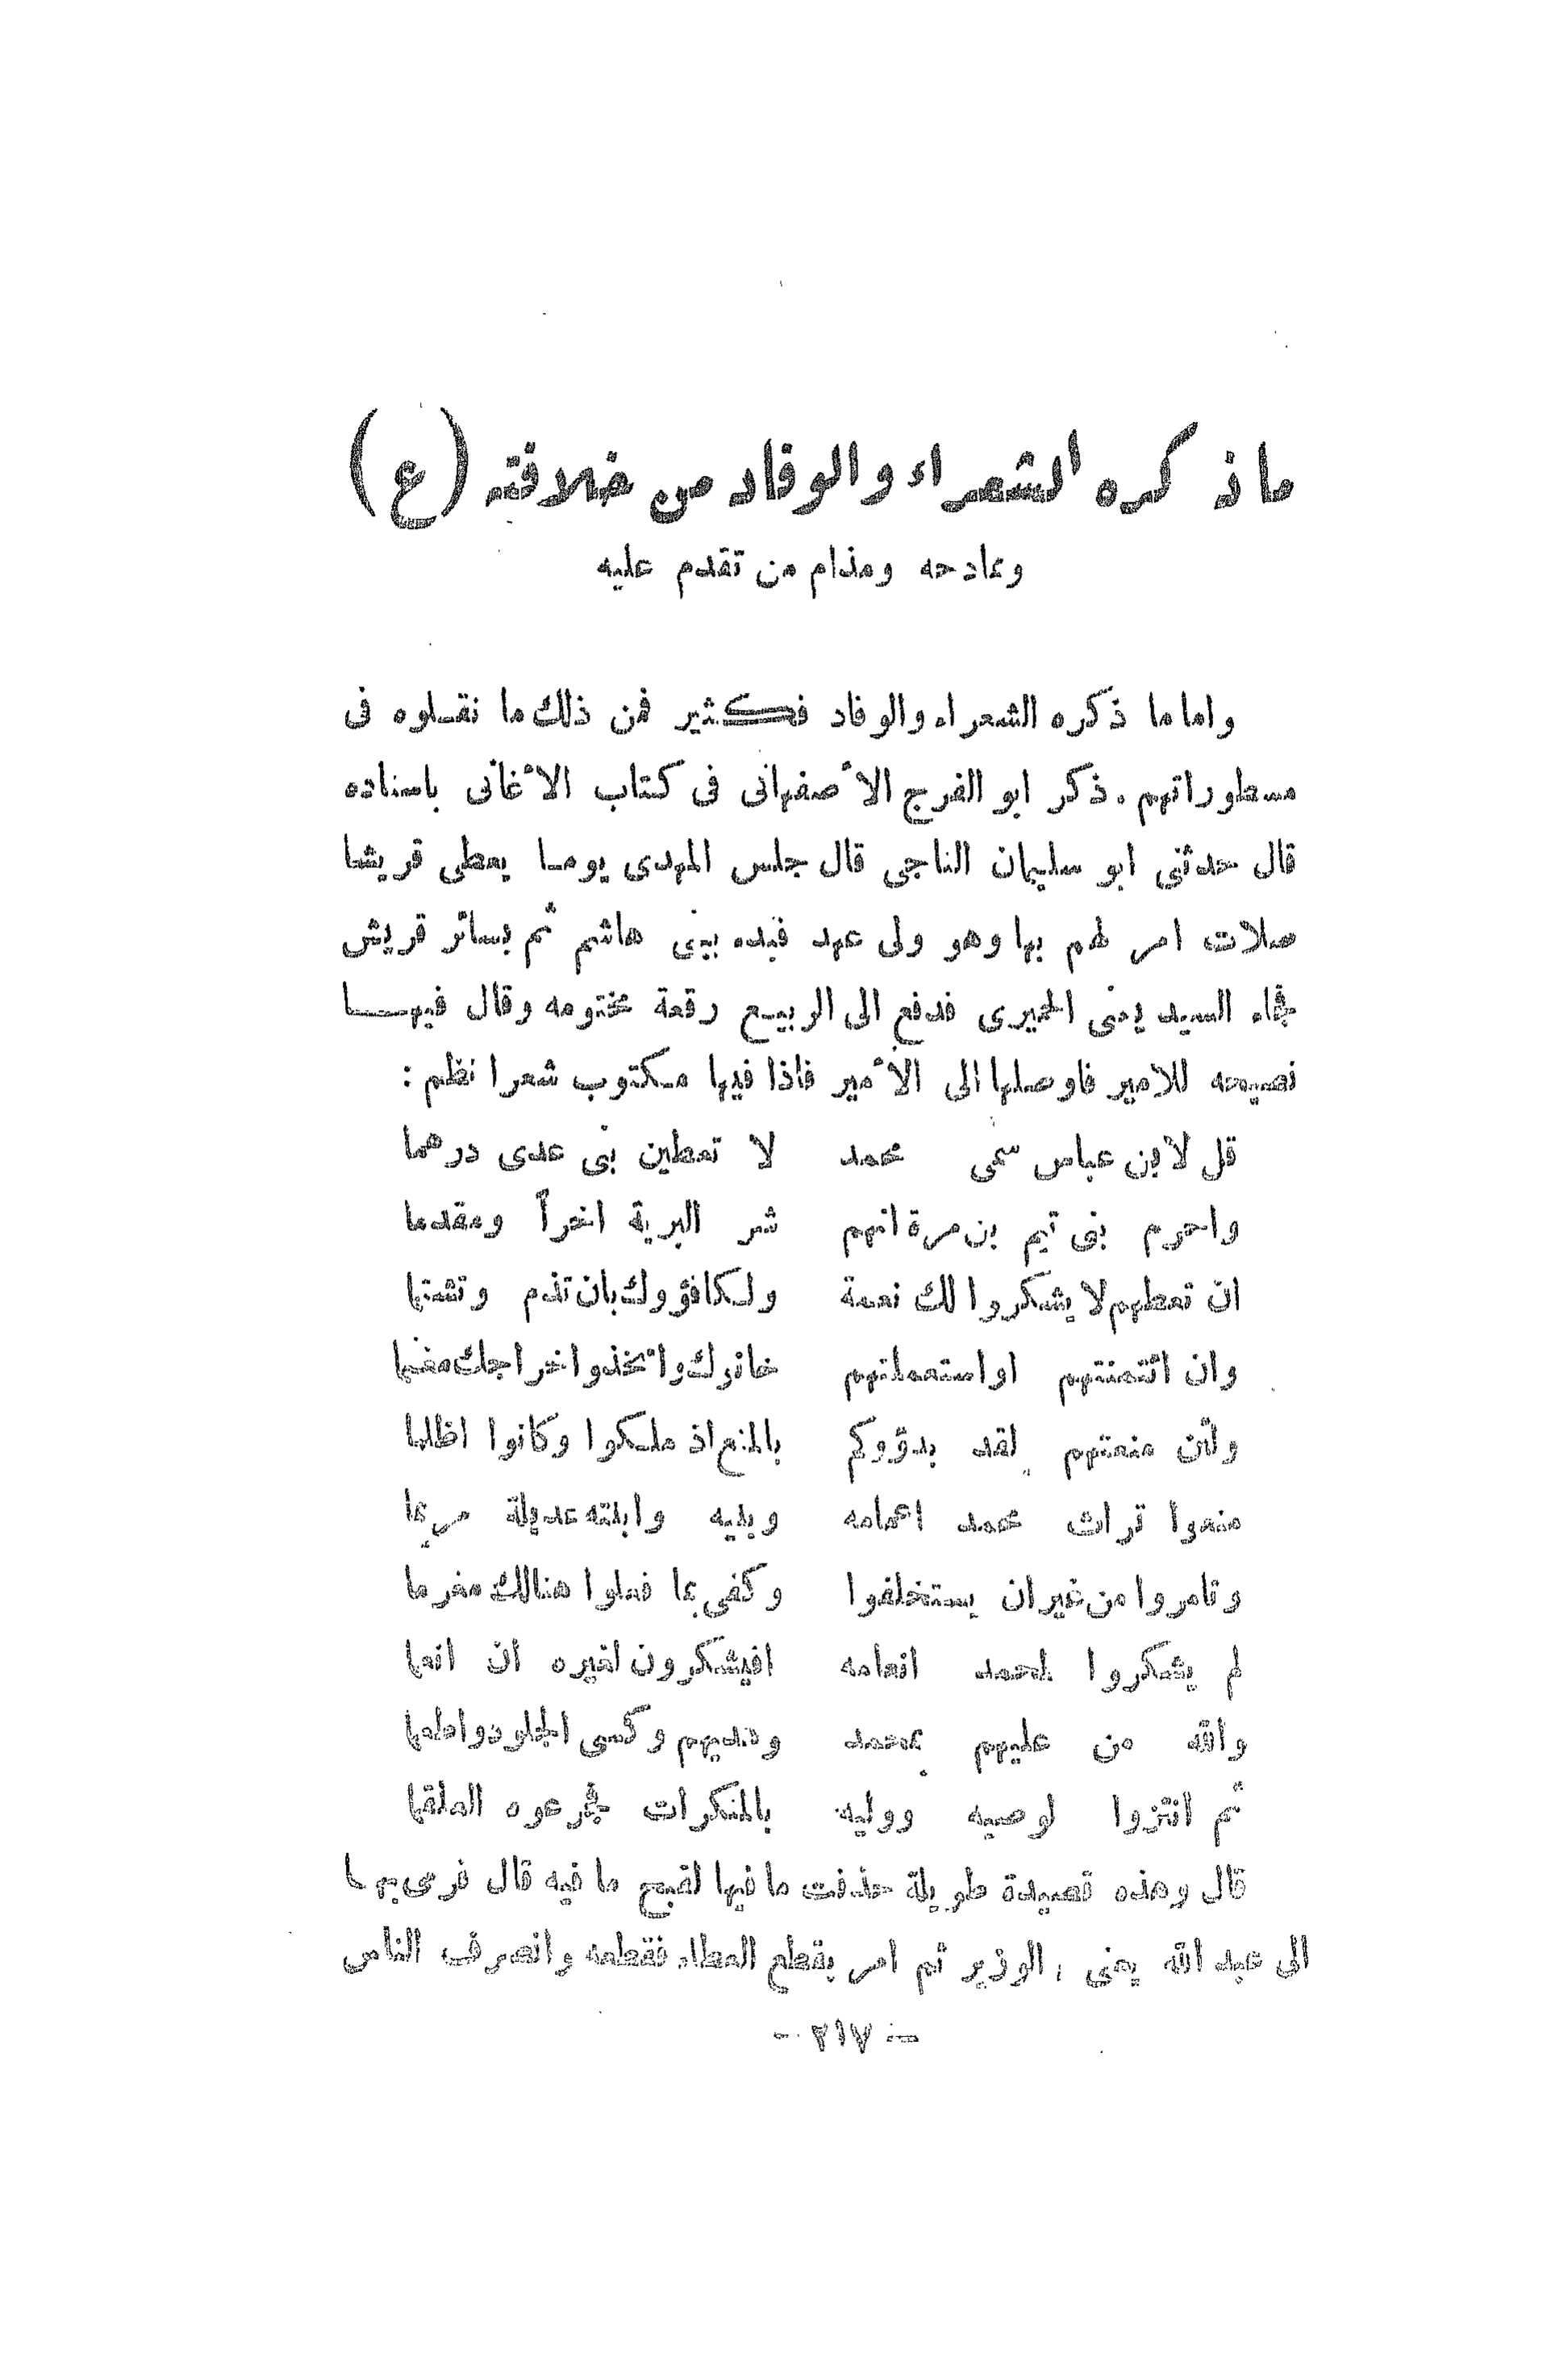 ما ذكره الشعراء والوفاد من خلافته (ع)
ومادحه ومذام من تقدم عليه
واما ما ذكره الشعراء والوفاد فكثير فمن ذلك ما نقلوه فى
مسطوراتهم . ذكر ابو الفرج الأصفهانى فى كتاب الأغانى باسناده
قال حدثنى ابو سليمان الناجى قال جلس المهدى يوما يعطى قريشا
صلات امر لهم بها وهو ولى عهد فبدء ببنى هاشم ثم بسائر قريش
فجاء السيد يعنى الحميرى فدفع الى الربيع رقعة مختومه وقال فيها
نصيحه للامير فاوصلها الى الأمير فاذا فيها مكتوب شعرا نظم :
قل لابن عباس سمى محمد لا تعطين بنى عدى درهما
واحرم بنى تيم بن مرة انهم شر البرية اخراً ومقدما
ان تعطهم لا يشكروا لك نعمة ولكافؤوك بان تذم وتشتما
وان ائتمنتهم او استعملتهم خانوك واتخذوا خراجك مغنما
ولئن منعتهم لقد بدؤوكم بالمنع اذ ملكوا وكانوا اظلما
منعوا تراث محمد اعمامه وبنيه وابنته عديلة مريما
وتامروا من غير ان يستخلفوا وكفى بما فعلوا هنالك مغرما
لم يشكروا لمحمد انعامه افيشكرون لغيره ان انعما
والله من عليهم بمحمد وهديهم وكسى الجلود واطعما
ثم انتزوا لوصيه ووليه بالمنكرات فجرعوه العلقما
قال وهذه قصيدة طويلة حذفت ما فيها لقبح ما فيه قال فرمى بها
الى عبد الله يعنى الوزير ثم امر بقطع العطاء فقطعه وانصرف الناس
- ٢١٧ -